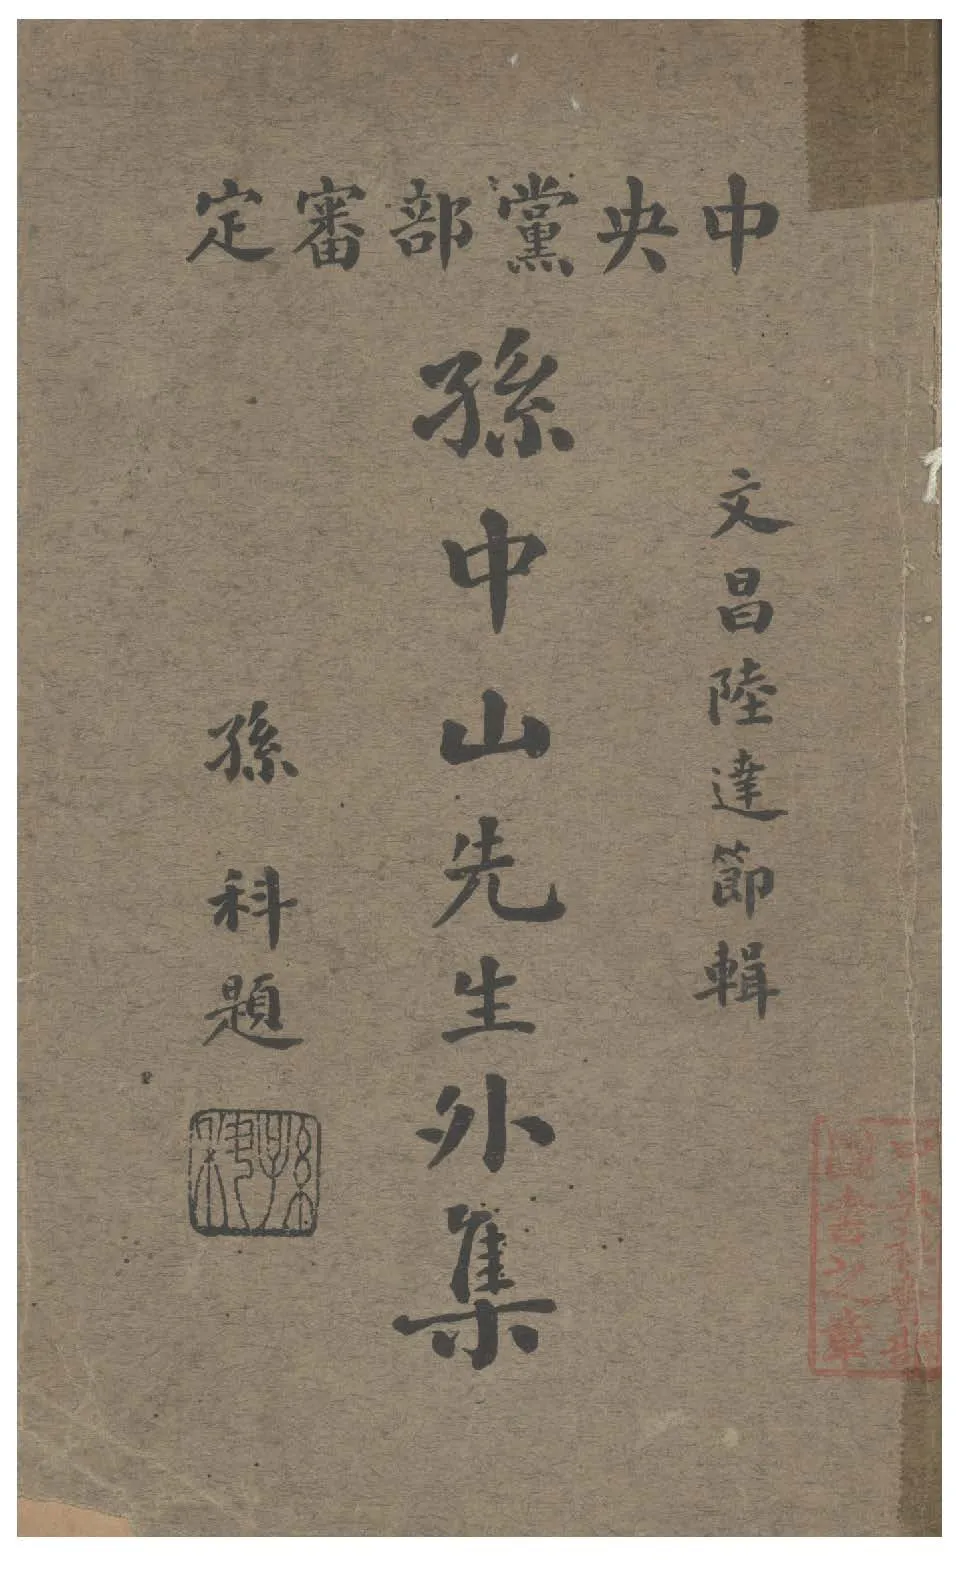 中央黨部審定
文昌陸達節輯
孫中山先生外集
孫科題
圖書之章